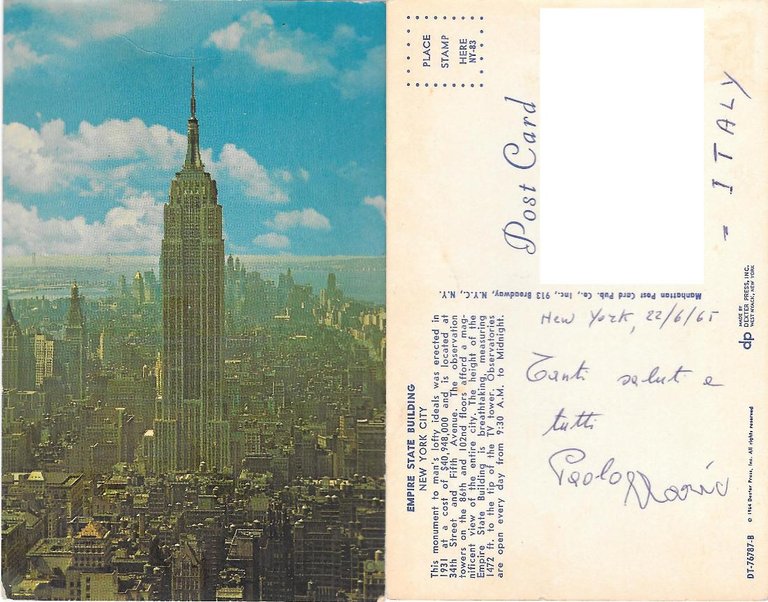 PLACE
STAMP
HERE
NY-83
Post Card
- ITALY
EMPIRE STATE BUILDING
NEW YORK CITY
This monument to man's lofty ideals was erected in
1931 at a cost of $40,948,000 and is located at
34th Street and Fifth Avenue. The observation
towers on the 86th and 102nd floors afford a mag-
nificent view of the entire city. The height of the
Empire State Building is breathtaking, measuring
1472 ft. to the tip of the TV tower. Observatories
are open every day from 9:30 A.M. to Midnight.
Manhattan Post Card Pub. Co., Inc., 913 Broadway, N.Y.C., N.Y.
New York, 22/6/65
Tanti saluti a
tutti
Paolo Mario
dp MADE BY
DEXTER PRESS, INC.
WEST NYACK, NEW YORK
© 1964 Dexter Press, Inc. All rights reserved
DT-76787-B